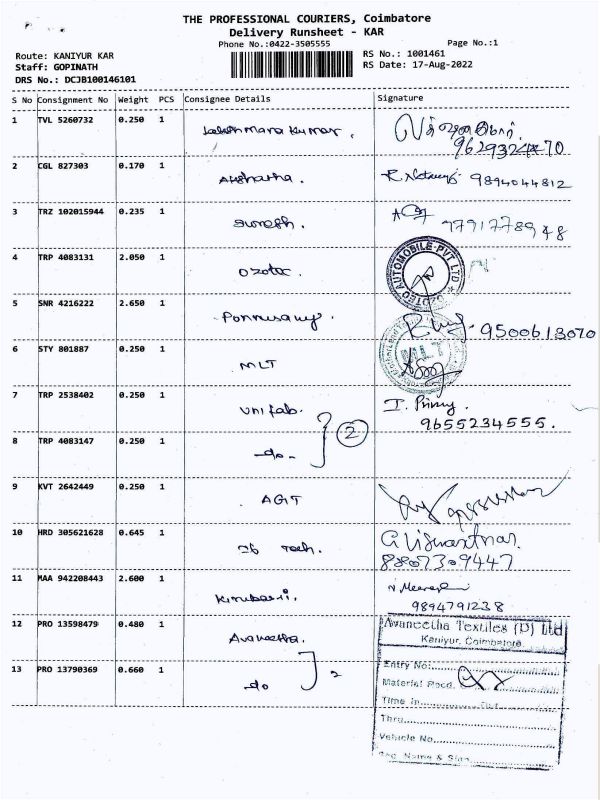 THE PROFESSIONAL COURIERS, Coimbatore
Delivery Runsheet - KAR
Phone No.:0422-3505555
Page No.:1
Route: KANIYUR KAR
Staff: GOPINATH
DRS No.: DCJB100146101
RS No.: 1001461
RS Date: 17-Aug-2022
S No Consignment No Weight PCS Consignee Details Signature
1 TVL 5260732 0.250 1 Lakshmana Kumar.
9629324470
2 CGL 827303 0.170 1 Akshatha. 9894044812
3 TRZ 102015944 0.235 1 Suresh. 7791778948
4 TRP 4083131 2.050 1 Ozotec. OZOTEC AUTOMOBILE PVT LTD
5 SNR 4216222 2.650 1 Ponnusamy. 9500613070
6 STY 801887 0.250 1 MLT MLT
7 TRP 2538402 0.250 1 Unifab. I. 
9655234555.
2
8 TRP 4083147 0.250 1 -do-
9 KVT 2642449 0.250 1 AGIT
10 HRD 305621628 0.645 1 Tech. G Viswanthan.
8807309447
11 MAA 942208443 2.600 1 N Meena
9894791238
12 PRO 13598479 0.480 1 Avaneetha.
13 PRO 13790369 0.660 1 -do 2
Avaneetha Textiles (P) Ltd
Kaniyur, Coimbatore.
Entry No:
Material Recd.
Time In Out
Thru
Vehicle No
Sec. Name & Sign